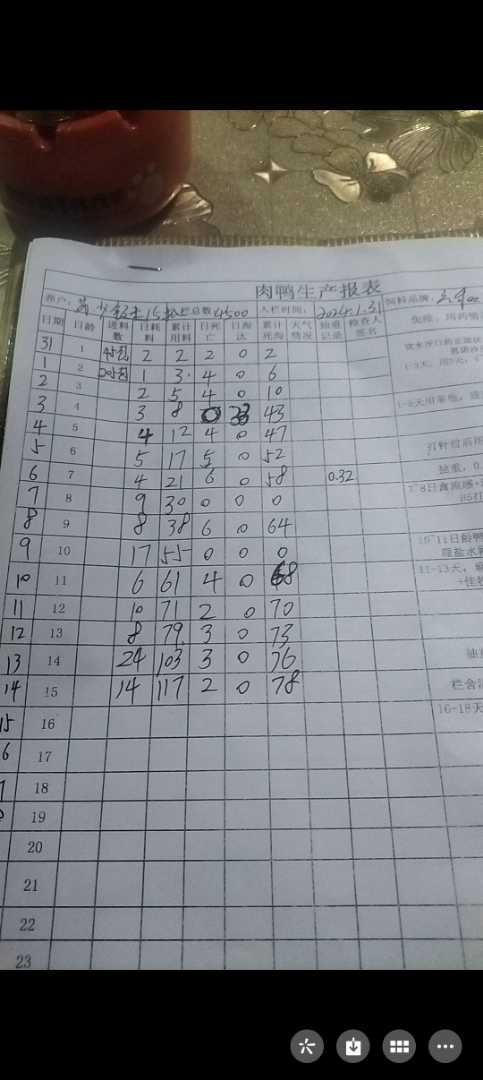 肉鸭生产报表
养户: 15 总数 4500 入栏时间: 2024.1.31 饲料品牌:
日期 日龄 进料数 日耗料 累计用料 日死亡 日淘汰 累计死淘 天气情况 抽重记录 检查人签名
31 1 2 2 2 0 2
1 2 1 3 4 0 6
2 3 2 5 4 0 10
3 4 3 8 0 33 43
4 5 4 12 4 0 47
5 6 5 17 5 0 52
6 7 4 21 6 0 58 0.32
7 8 9 30 0 0 0
8 9 8 38 6 0 64
9 10 17 55 0 0 0
10 11 6 61 4 0 68
11 12 10 71 2 0 70
12 13 8 79 3 0 73
13 14 24 103 3 0 76
14 15 14 117 2 0 78
15 16
6 17
18
19
20
21
22
23
16-18天